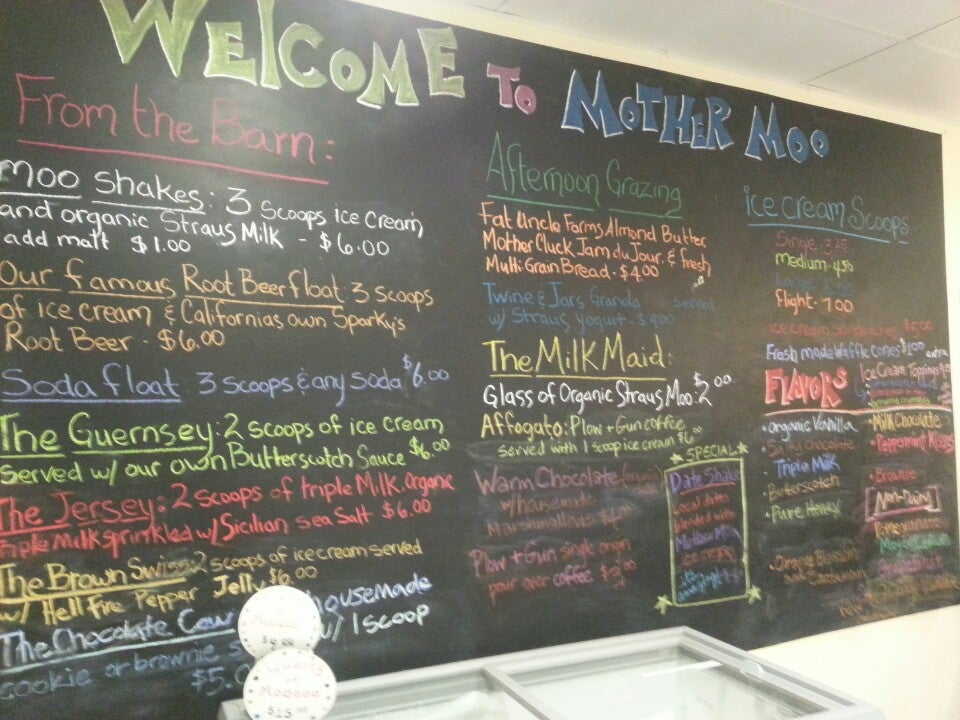 Welcome to Mother Moo
From the Barn:
Moo Shakes: 3 scoops ice cream
and organic Straus Milk - $6.00
add malt $1.00
Our famous Root Beer float 3 scoops
of ice cream & Californias own Sparky's
Root Beer - $6.00
Soda float 3 scoops & any soda $6.00
The Guernsey: 2 scoops of ice cream
served w/ our own Butterscotch Sauce $6.00
The Jersey: 2 scoops of triple Milk. Organic
triple Milk sprinkled w/ Sicilian sea Salt $6.00
The Brown Swiss: 2 scoops of ice cream served
w/ Hell Fire Pepper Jelly $6.00
The Chocolate Cow housemade
cookie or brownie w/ 1 scoop
$5.0
Afternoon Grazing
Fat Uncle Farms Almond Butter
Mother Cluck Jam du Jour & fresh
Multi Grain Bread - $4.00
Twine & Jars Granola served
w/ Straus yogurt - $4.00
The Milk Maid:
Glass of Organic Straus Moo: $2.00
Affogato: Plow + Gun coffee
served with 1 scoop ice cream $6
Warm Chocolate
w/ housemade
Marshmallows
Plow + Gun single origin
pour over coffee
Special
Date Shake
Local dates
blended with
Mother Moo
ice cream
Ice Cream Scoops
Single - 3.25
medium - 4.50
Flight - 7.00
ice cream Sandwiches $5.00
Fresh made Waffle Cones $1.00 extra
Flavors
• Organic Vanilla
• Salty Chocolate
Triple Milk
• Butterscotch
• Pure Honey
Ice Cream Toppings
• Milk Chocolate
• Peppermint Kiss
• Brownie
Non-Dairy
Pomegranate
$9.00
Quarts of
Mooooo
$15.00